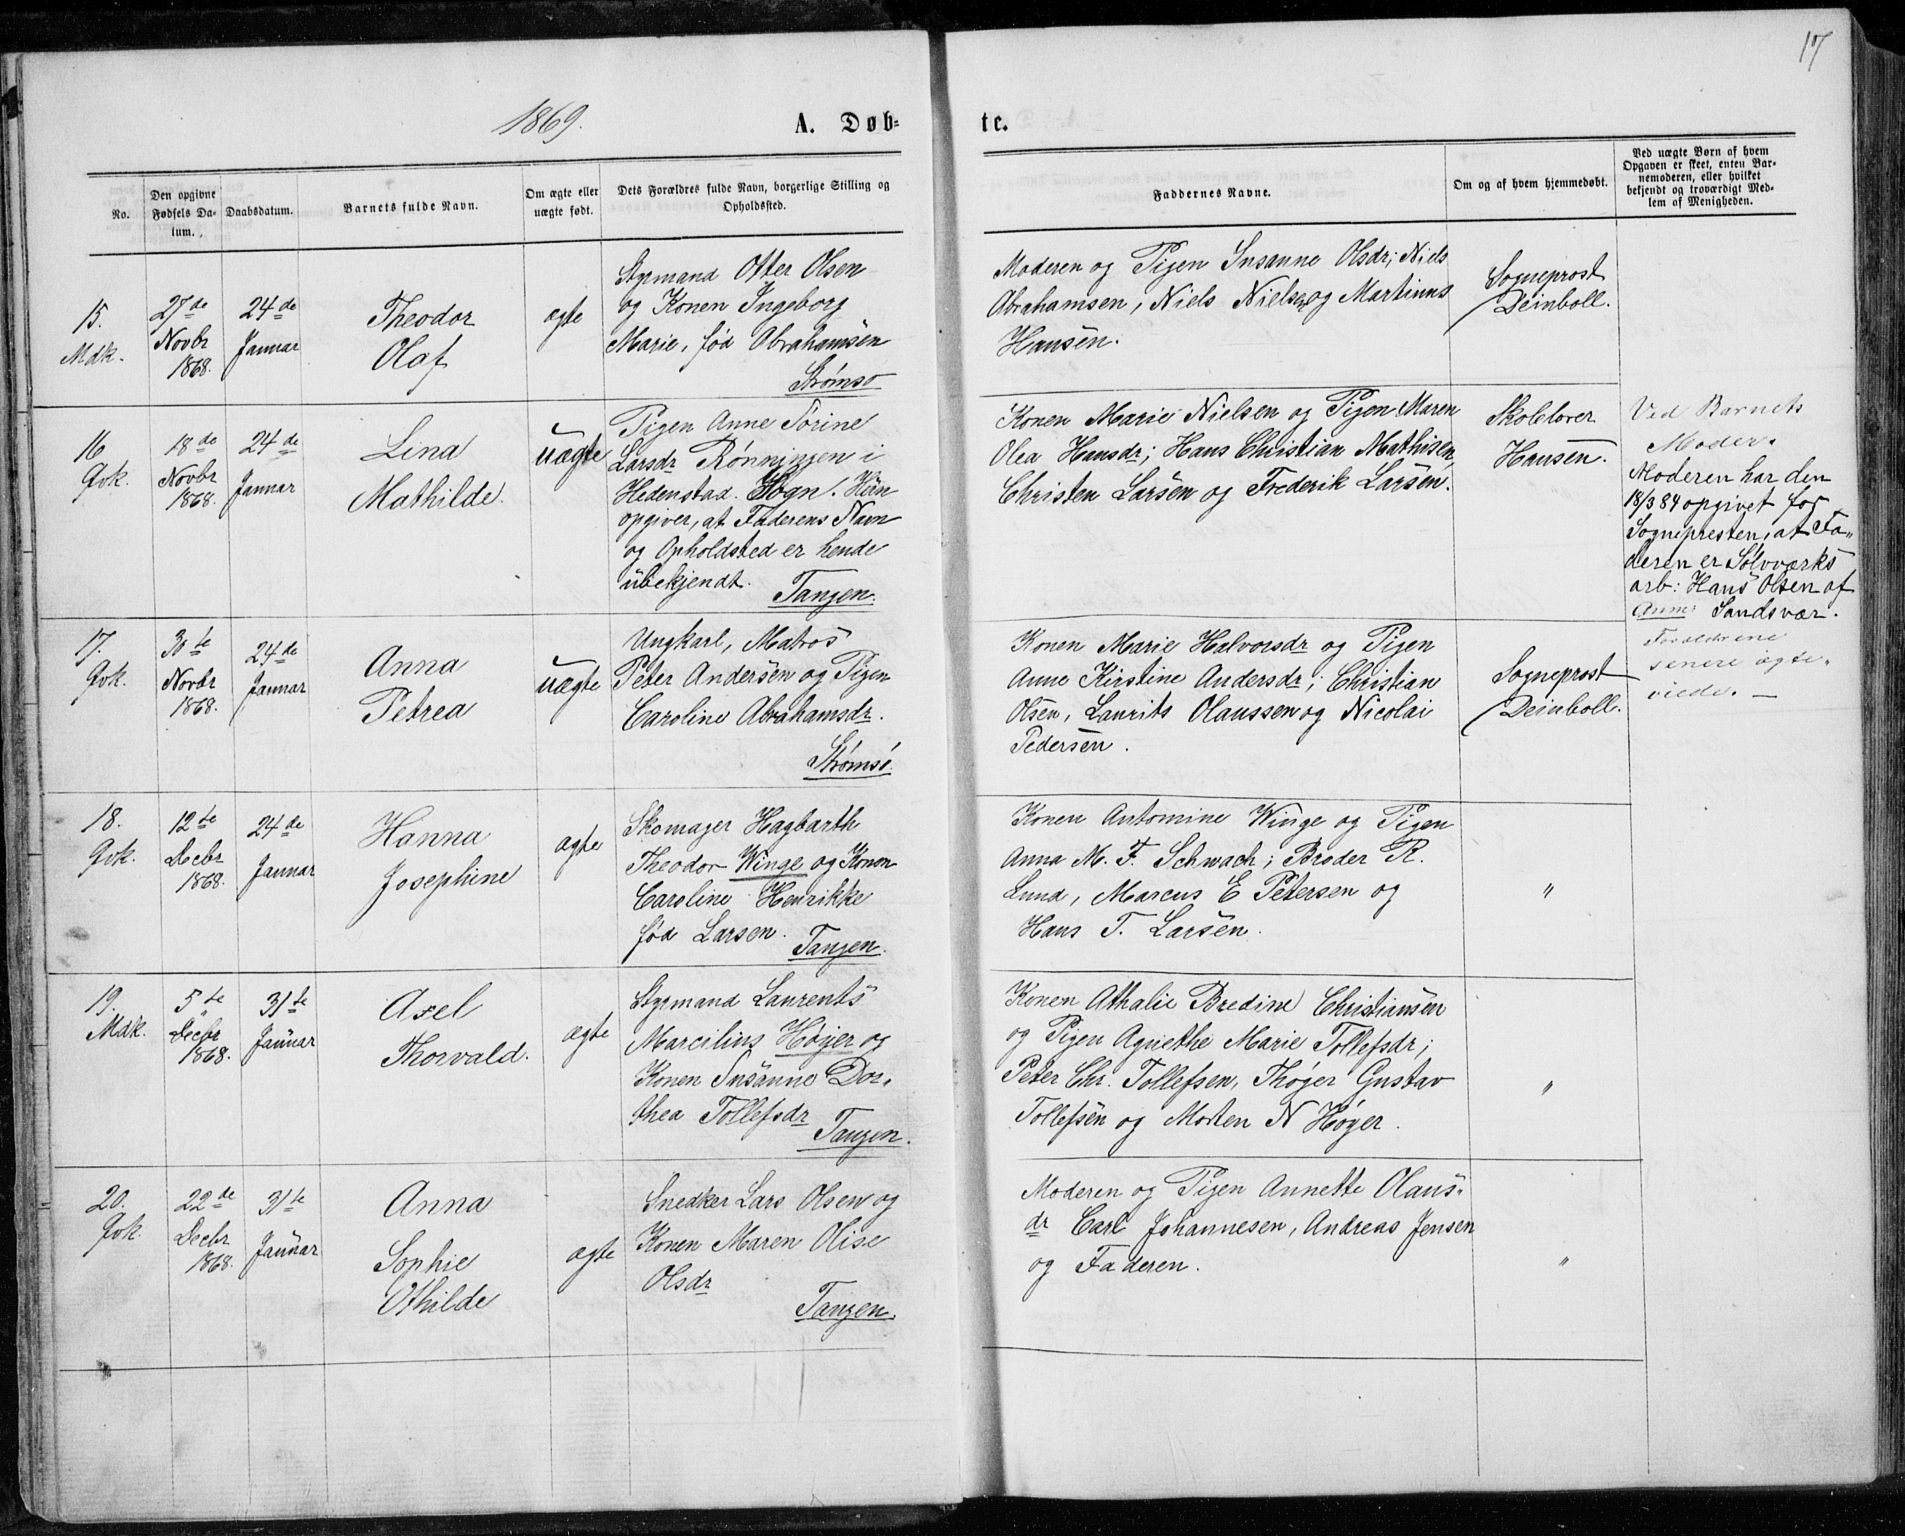 17
1869.
A. Døb-
te.
No.
Den opgivne
Fødsels Da-
tum.
Daabsdatum.
Barnets fulde Navn.
Om ægte eller
uægte født.
Dets Forældres fulde Navn, borgerlige Stilling og
Opholdssted.
Faddernes Navne.
Om og af hvem hjemmedøbt.
Ved uægte Børn af hvem
Opgaven er skeet, enten Bar-
nemoderen, eller hvilket
bekjendt og troværdigt Med-
lem af Menigheden.
15.
Mdk.
27de
Novbr
1868.
24de
Januar
Theodor
Olaf
ægte
Styrmand Otter Olsen
og Konen Ingeborg
Marie, fød Abrahamsen
Strømsø
Moderen og Pigen Susanne Olsdr; Niels
Abrahamsen, Niels Nielsen og Martinus
Hansen.
Sogneprost
Deinboll.
16
Qvk.
18de
Novbr
1868.
24de
Januar
Lina
Mathilde.
uægte
Pigen Anne Torine
Larsdr Rønningen i
Hedenstad Sogn. Hun
opgiver, at Faderens Navn
og Opholdsted er hende
ubekjendt.
Tangen.
Konen Marie Nielsen og Pigen Maren
Olea Hansdr; Hans Christian Mathisen,
Christen Larsen og Frederik Larsen.
Skolelærer
Hansen.
Ved Barnets
Moder.
Moderen har den
18/3 84 opgivet for
Sognepresten, at Fa-
deren er Sølvværks
arb: Hans Olsen af
Sandsvær.
Anm:
Forældrene
senere ægte-
viede. —
17.
Qvk.
30te
Novbr
1868.
24de
Januar
Anna
Petrea
uægte
Ungkarl, Matros
Peter Andersen og Pigen
Caroline Abrahamsdr.
Strømsø.
Konen Marie Halvorsdr og Pigen
Anne Kirstine Andersdr; Christian
Olsen, Laurits Olaussen og Nicolai
Pedersen.
Sogneprost
Deinboll.
18.
Qvk.
12te
Decbr
1868.
24de
Januar
Hanna
Josephine
ægte
Skomager Hagbarth
Theodor Winge og Konen
Caroline Henrikke
fød Larsen.
Tangen.
Konen Antomine Winge og Pigen
Anna M. F. Schwach; Broder R.
Lund, Marcus E Petersen og
Hans T. Larsen.
"
19.
Mdk.
5te
Decbr
1868.
31te
Januar
Axel
Thorvald.
ægte
Styrmand Laurents
Marcilius Høyer og
Konen Susanne Dor-
thea Tollefsdr
Tangen.
Konen Athalie Bredine Christiansen
og Pigen Agnethe Marie Tollefsdr;
Peter Chr. Tollefsen, Thøger Gustav
Tollefsen og Morten N Høyer.
"
20.
Qvk.
22de
Decbr
1868.
31te
Januar
Anna
Sophie
Othilde
ægte
Snedker Lars Olsen og
Konen Maren Olise
Olsdr
Tangen.
Moderen og Pigen Annette Olaus-
dr Carl Johannesen, Andreas Jensen
og Faderen.
"